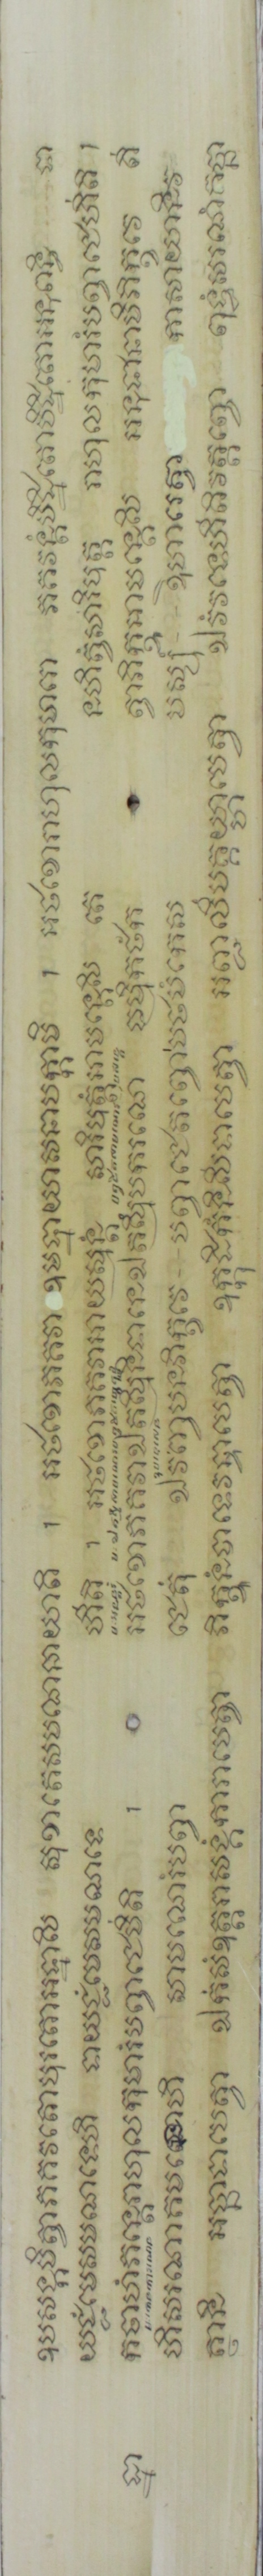 ឧបសង្កមិត្វាភគវតោបុរតោអដ្ឋាសិ សុខាតេសមណឆាយាតិ ។ អថខោភគវា ឧដ្ឋាយាសនាបក្កាមិ ។ អថខោរាហុលកុមារោ ភគវន្តំបិដ្ឋិតោបិដ្ឋិតោអនុពន្ធិ ទា
យជ្ជំមេសមណទេហិ ទាយជ្ជំមេសមណទេ ហីតិ ។ អថខោភគវាអាយស្មន្តំ សារិបុត្តំអាមន្តេសិ តេ នហិត្វំសារិបុត្ត រាហុលកុមារំបព្វាជេហីតិ ។
កថាហំភន្តេរាហុលកុមារំបព្វាជេមីតិ ។ អថខោភគវាឯតស្មិំនិទានេឯតស្មិំបករណេ ធម្មិកថំក ត្វាភិក្ខូអាមន្តេសិ អនុជានាមិភិក្ខវេ តី
ហិសរណាគមនេហិ សាមណេរំបព្វា ជេតុំ ឯវញ្ចបនភិក្ខវេ បព្វាជេតព្វោបឋមំកេស មស្សុំ ឱហារេត្វា កាសាយានិវ
ត្ថានិ អច្ឆាទាបេត្វា ឯកំសំឧត្តរាសង្គំការាបេត្វា ភិក្ខូនំបាទេវន្ទាបេត្វា ឧក្កុដិកំនិសីទាបេត្វា អញ្ជលិំបគ្គណ្ហាបេត្វា ឯវំវទេហីតិវត្តព្វោ ពុទ្ធំសរណំគច្ឆា